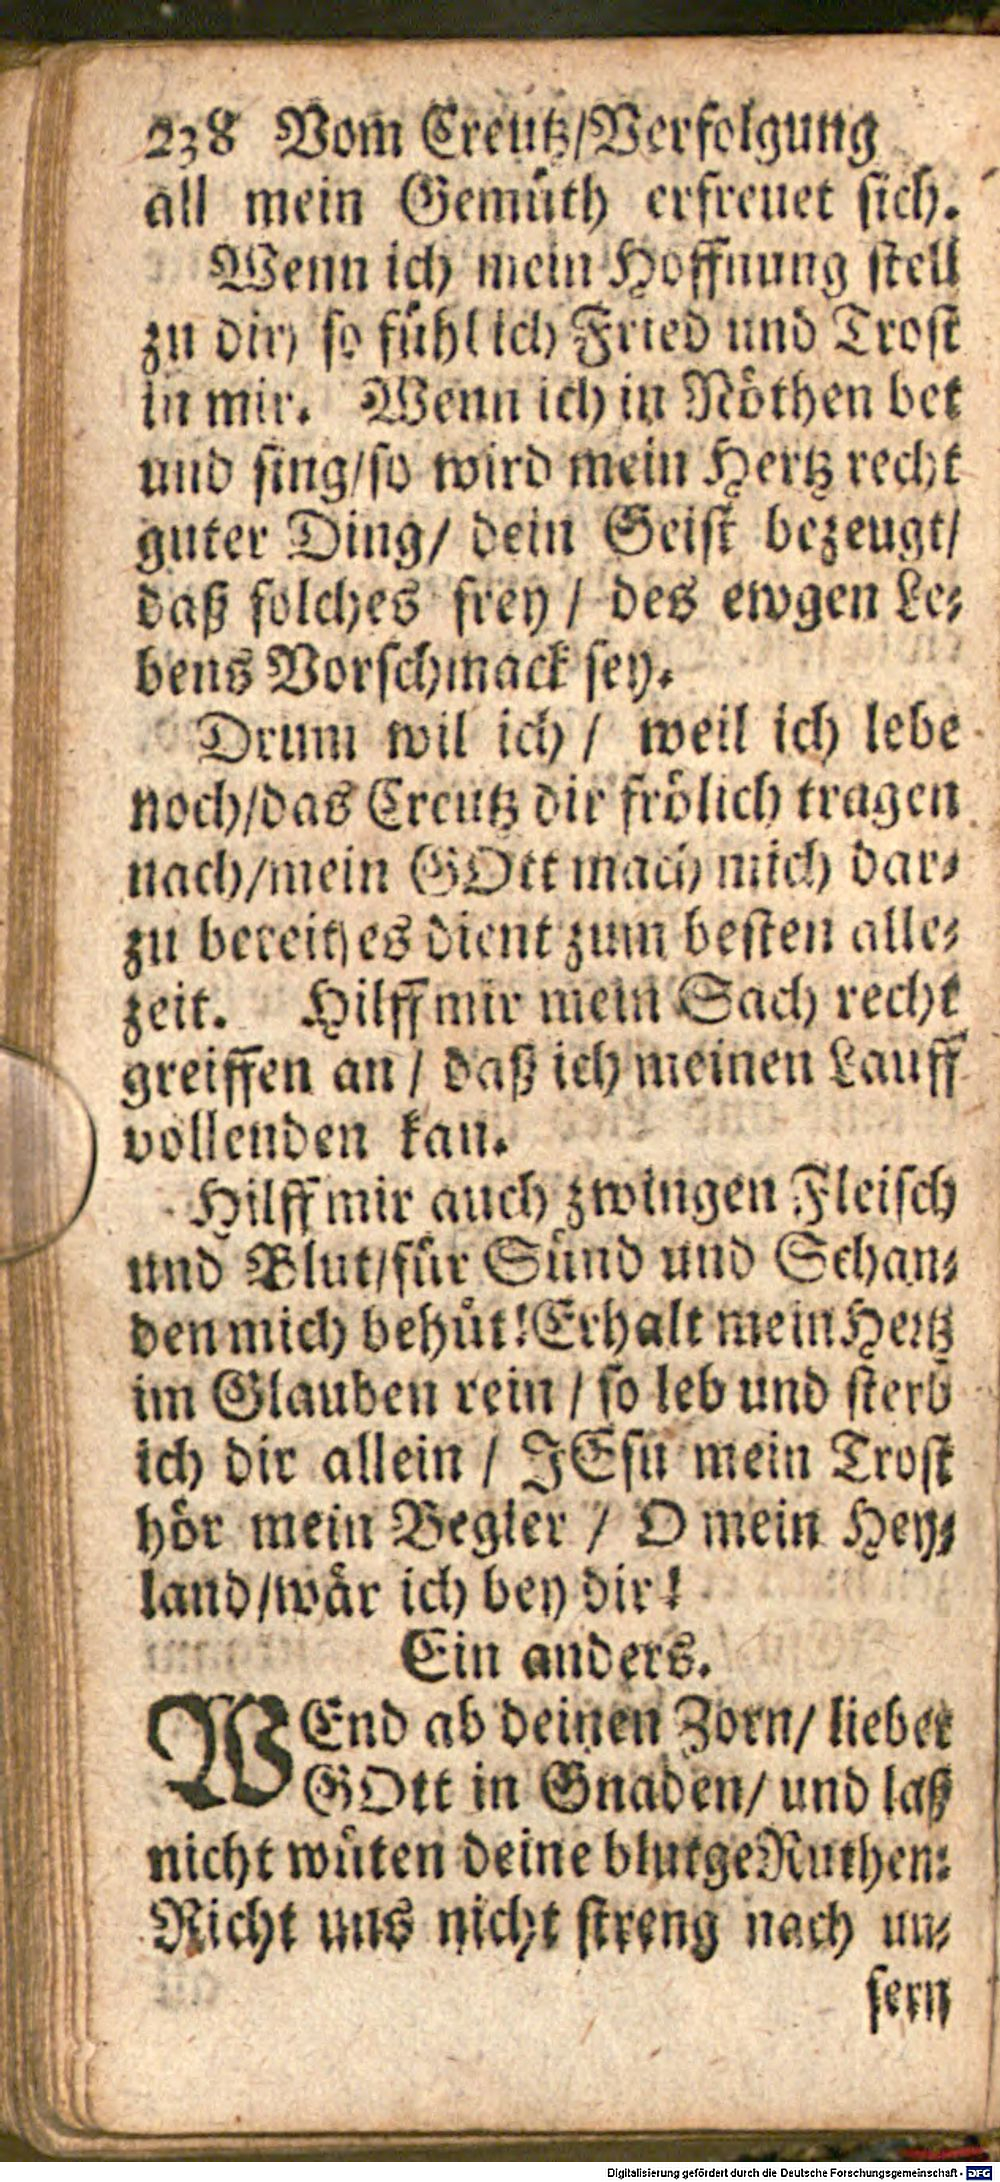 238 Vom Creutz/Verfolgung
all mein Gemüth erfreuet sich.
Wenn ich mein Hoffnung stell
zu dir/ so fühl ich Fried und Trost
in mir. Wenn ich in Nöthen bet
und sing/so wird mein Hertz recht
guter Ding/ dein Geist bezeugt/
daß solches frey / des ewgen Le-
bens Vorschmack sey.
Drum wil ich / weil ich lebe
noch/das Creutz dir frölich tragen
nach/mein GOtt mach mich dar-
zu bereit/es dient zum besten alle-
zeit. Hilff mir mein Sach recht
greiffen an / daß ich meinen Lauff
vollenden kan.
Hilff mir auch zwingen Fleisch
und Blut/für Sünd und Schan-
den mich behüt! Erhalt mein Hertz
im Glauben rein / so leb und sterb
ich dir allein / JEsu mein Trost
hör mein Begier / O mein Hey-
land/wär ich bey dir!
Ein anders.
WEnd ab deinen Zorn/ lieber
GOtt in Gnaden/ und laß
nicht wüten deine blutge Ruthen:
Richt uns nicht streng nach un-
sern
Digitalisierung gefördert durch die Deutsche Forschungsgemeinschaft - DFG